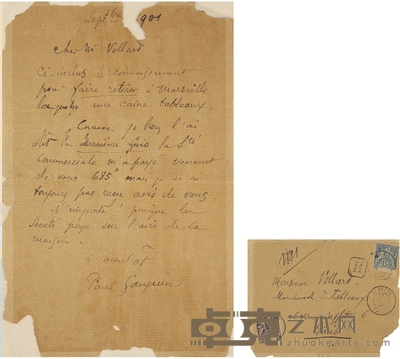 Septbre 1901
Cher Mr Vollard
Ci inclus le connaissement
pour faire retirer à Marseille
une caisse tableaux.
Comme je vous l'ai
dit la dernière fois la Sté
Commerciale m'a payé venant
de vous 685f mais je n'ai
toujours pas reçu avis de vous
N'importe ! puisque la
Société paye sur l'avis de la
maison.
à bientôt
Paul Gauguin
Monsieur Vollard
Marchand de tableaux
6
Paris
卓克艺术网
www.zhuokearts.com